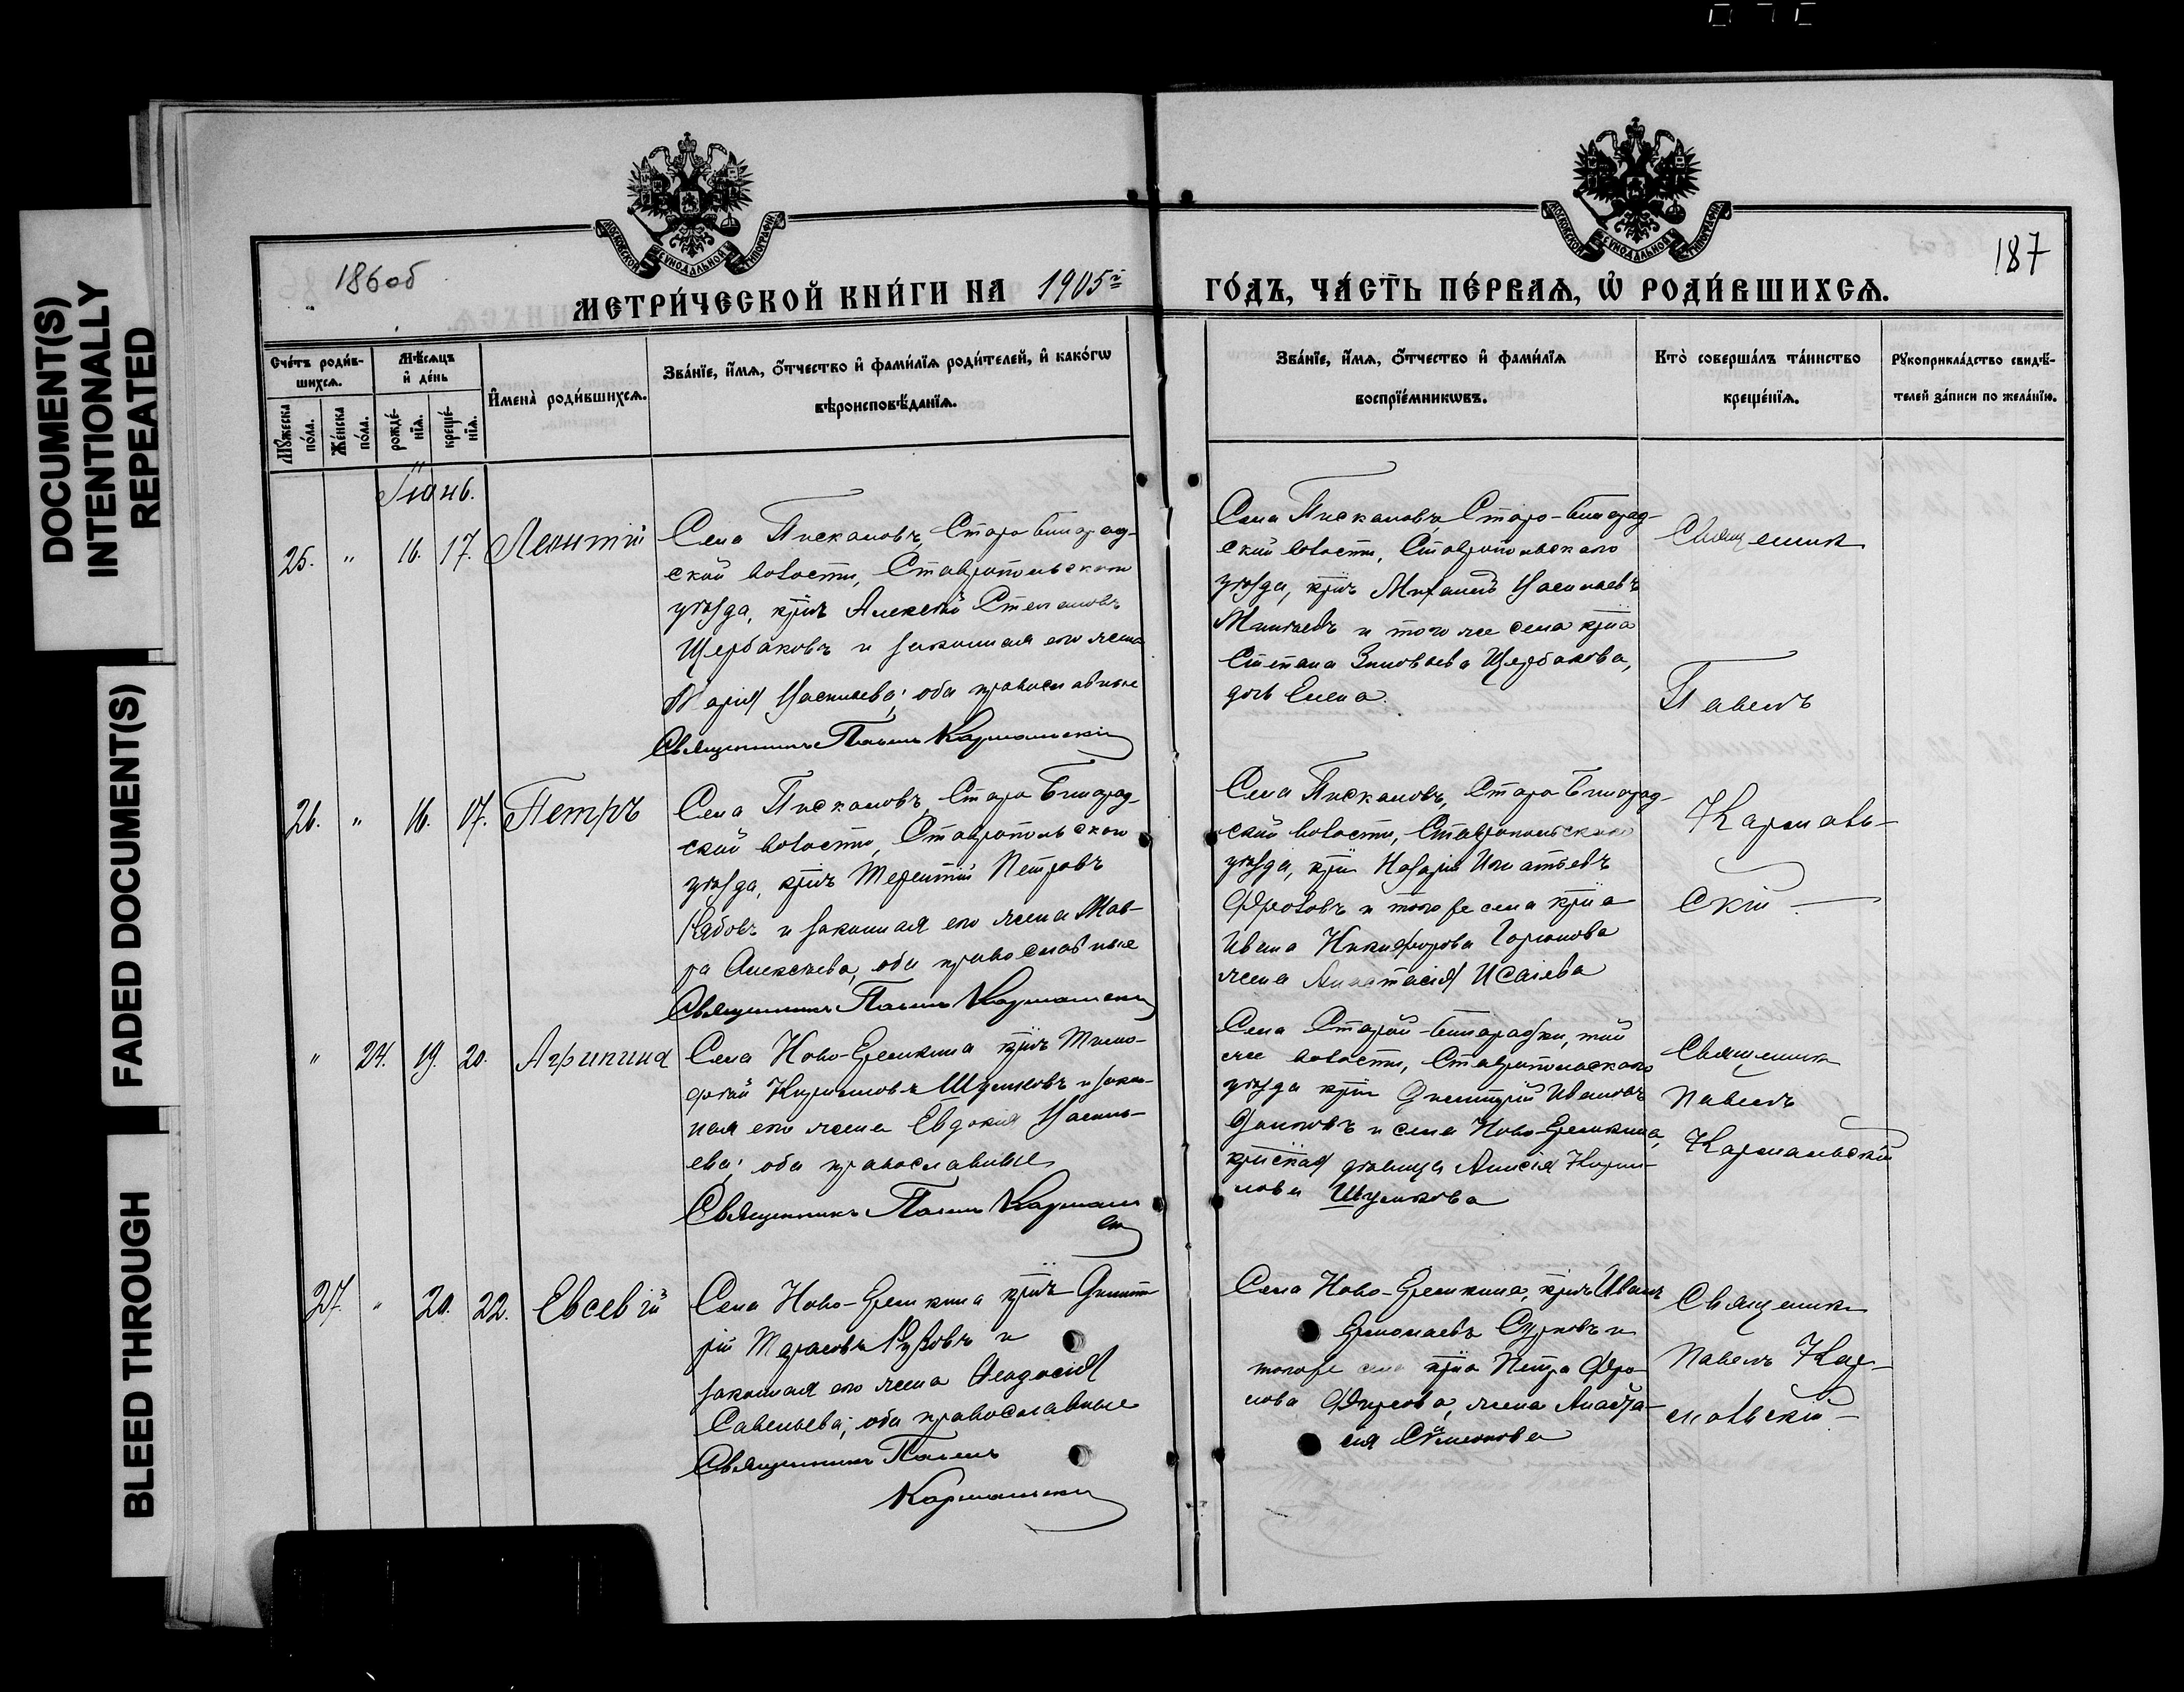 DOCUMENT(S)
INTENTIONALLY
REPEATED
FADED DOCUMENT(S)
BLEED THROUGH
186об
187
МЕТРИ́ЧЕСКОЙ КНИ́ГИ НА 1905й
ГО́ДЪ, ЧА́СТЬ ПЕ́РВАѦ, Ѡ҆ РОДИ́ВШИХСѦ.
МОСКОВСКОЙ СѴНОДАЛЬНОЙ ТИПОГРАФІИ
МОСКОВСКОЙ СѴНОДАЛЬНОЙ ТИПОГРАФІИ
Сче́тъ роди́в-
шихсѧ.
Мꙋжеска по́ла.
Же́нска по́ла.
Мѣ́сѧцъ и҆ де́нь
рожде́-
нїѧ.
креще́-
нїѧ.
И҆мена̀ роди́вшихсѧ.
Зва́нїе, и҆́мѧ, ѻ҆́тчество и҆ фами́лїѧ роди́телей, и҆ како́гѡ
вѣроисповѣ́данїѧ.
Зва́нїе, и҆́мѧ, ѻ҆́тчество и҆ фами́лїѧ
воспрїе́мникѡвъ.
Кто̀ соверша́лъ та́инство
креще́нїѧ.
Рꙋкоприкла́дство свидѣ́-
телей за́писи по жела́нїю.
Іюнь.
25. " 16. 17. Леонтій
Села Пискаловъ, Старо-Бинарад-
ской волости, Ставропольскаго
уѣзда, крнъ Алексѣй Степановъ
Щербаковъ и законная его жена
Марія Васильева; оба православные
Священникъ Павелъ Кармальскій
Села Пискаловъ, Старо-Бинарад-
ской волости, Ставропольскаго
уѣзда, крнъ Михаилъ Васильевъ
и того же села крна
Степана Зиновьева Щербакова,
дочь Елена.
Священник
Павелъ
Кармаль-
скій
26. " 16. 17. Петръ
Села Пискаловъ, Старо Бинарад-
ской волости, Ставропольской
уѣзда, крнъ Терентій Петровъ
Рябовъ и законная его жена Мав-
ра Алексѣева, оба православные
Священникъ Павелъ Кармальскій
Села Пискаловъ, Старо Бинарад-
ской волости, Ставропольскаго
уѣзда, крн Назарій Игнатьевъ
Фроловъ и того же села крна
Ивана Никифорова Горюнова
жена Анастасія Исаіева
" 24. 19. 20. Агрипина
Села Ново-Еремкина крнъ Тимо-
фей Кириловъ Шумковъ и закон-
ная его жена Евдокия Василь-
ева; оба православные
Священникъ Павелъ Кармаль
ск
Села Старой-Бинарадки, той
же волости, Ставропольскаго
уѣзда крн Димитрій Ивановъ
и села Ново-Еремкина,
крнская дѣвица Анисія Кири-
лова Шумкова
Священник
Павелъ
Кармальскій
27. " 20. 22. Евсевій
Села Ново-Еремкина крнъ Димит-
рій Тарасовъ и
законная его жена Феодосія
Савельева; оба православные
Священникъ Павелъ
Кармальскій
Села Ново-Еремкина, крнъ Иванъ
Ермолаевъ Сурковъ и
того же села крна Петра Фро-
лова Фирсова, жена Анаста-
сія Симеонова
Священник
Павелъ Кар-
мальскій